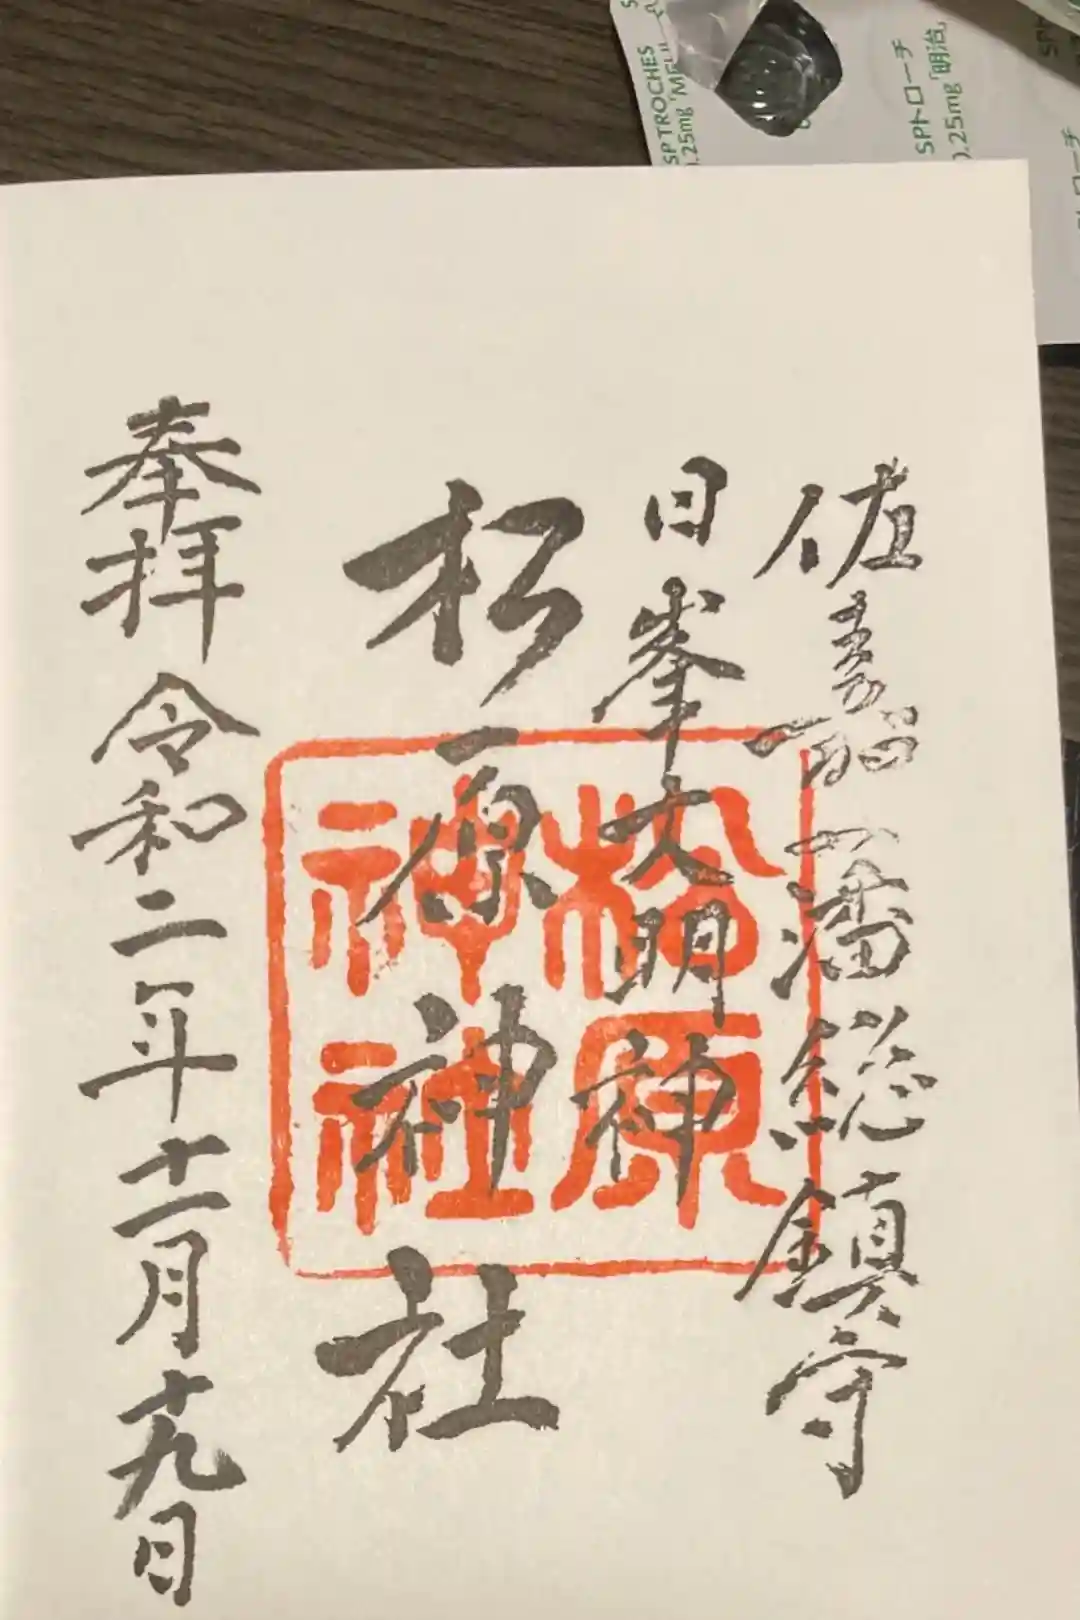 佐嘉藩総鎮守
日峯大明神
松原神社
奉拝 令和二年十一月十九日
松原
神社
SP TROCHES
.25mg
SPトローチ
0.25mg「明治」